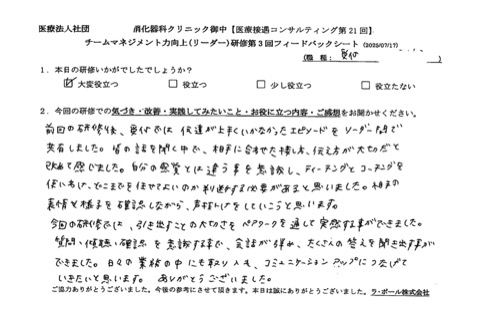 医療法人社団　　　消化器科クリニック御中【医療接遇コンサルティング第21回】
チームマネジメント力向上(リーダー)研修第3回フィードバックシート (2025/07/17)
(職種：受付
1．本日の研修いかがでしたでしょうか？
☑大変役立つ　□役立つ　□少し役立つ　□役立たない
2．今回の研修での気づき・改善・実践してみたいこと・お役に立つ内容・ご感想をお聞かせください。
前回の研修後、受付では伝達が上手くいかなかったエピソードをリーダー間で
共有しました。皆の話を聞く中で、相手に合わせた接し方、伝え方が大切だと
改めて感じました。自分の感覚とは違う事を意識し、ティーチングとコーチングを
使い分け、どこまでを任せてよいのか判断する必要があると思いました。相手の
表情や様子を確認しながら、声掛けをしていこうと思います。
今回の研修では、引き出すことの大切さをペアワークを通して実感する事ができました。
質問・傾聴・確認を意識する事で、会話が弾み、たくさんの答えを聞き出す事が
できました。日々の業務の中にも取り入れ、コミュニケーションアップにつなげて
いきたいと思います。ありがとうございました。
ご協力ありがとうございました。今後の参考にさせて頂きます。本日は誠にありがとうございました。ラ・ポール株式会社